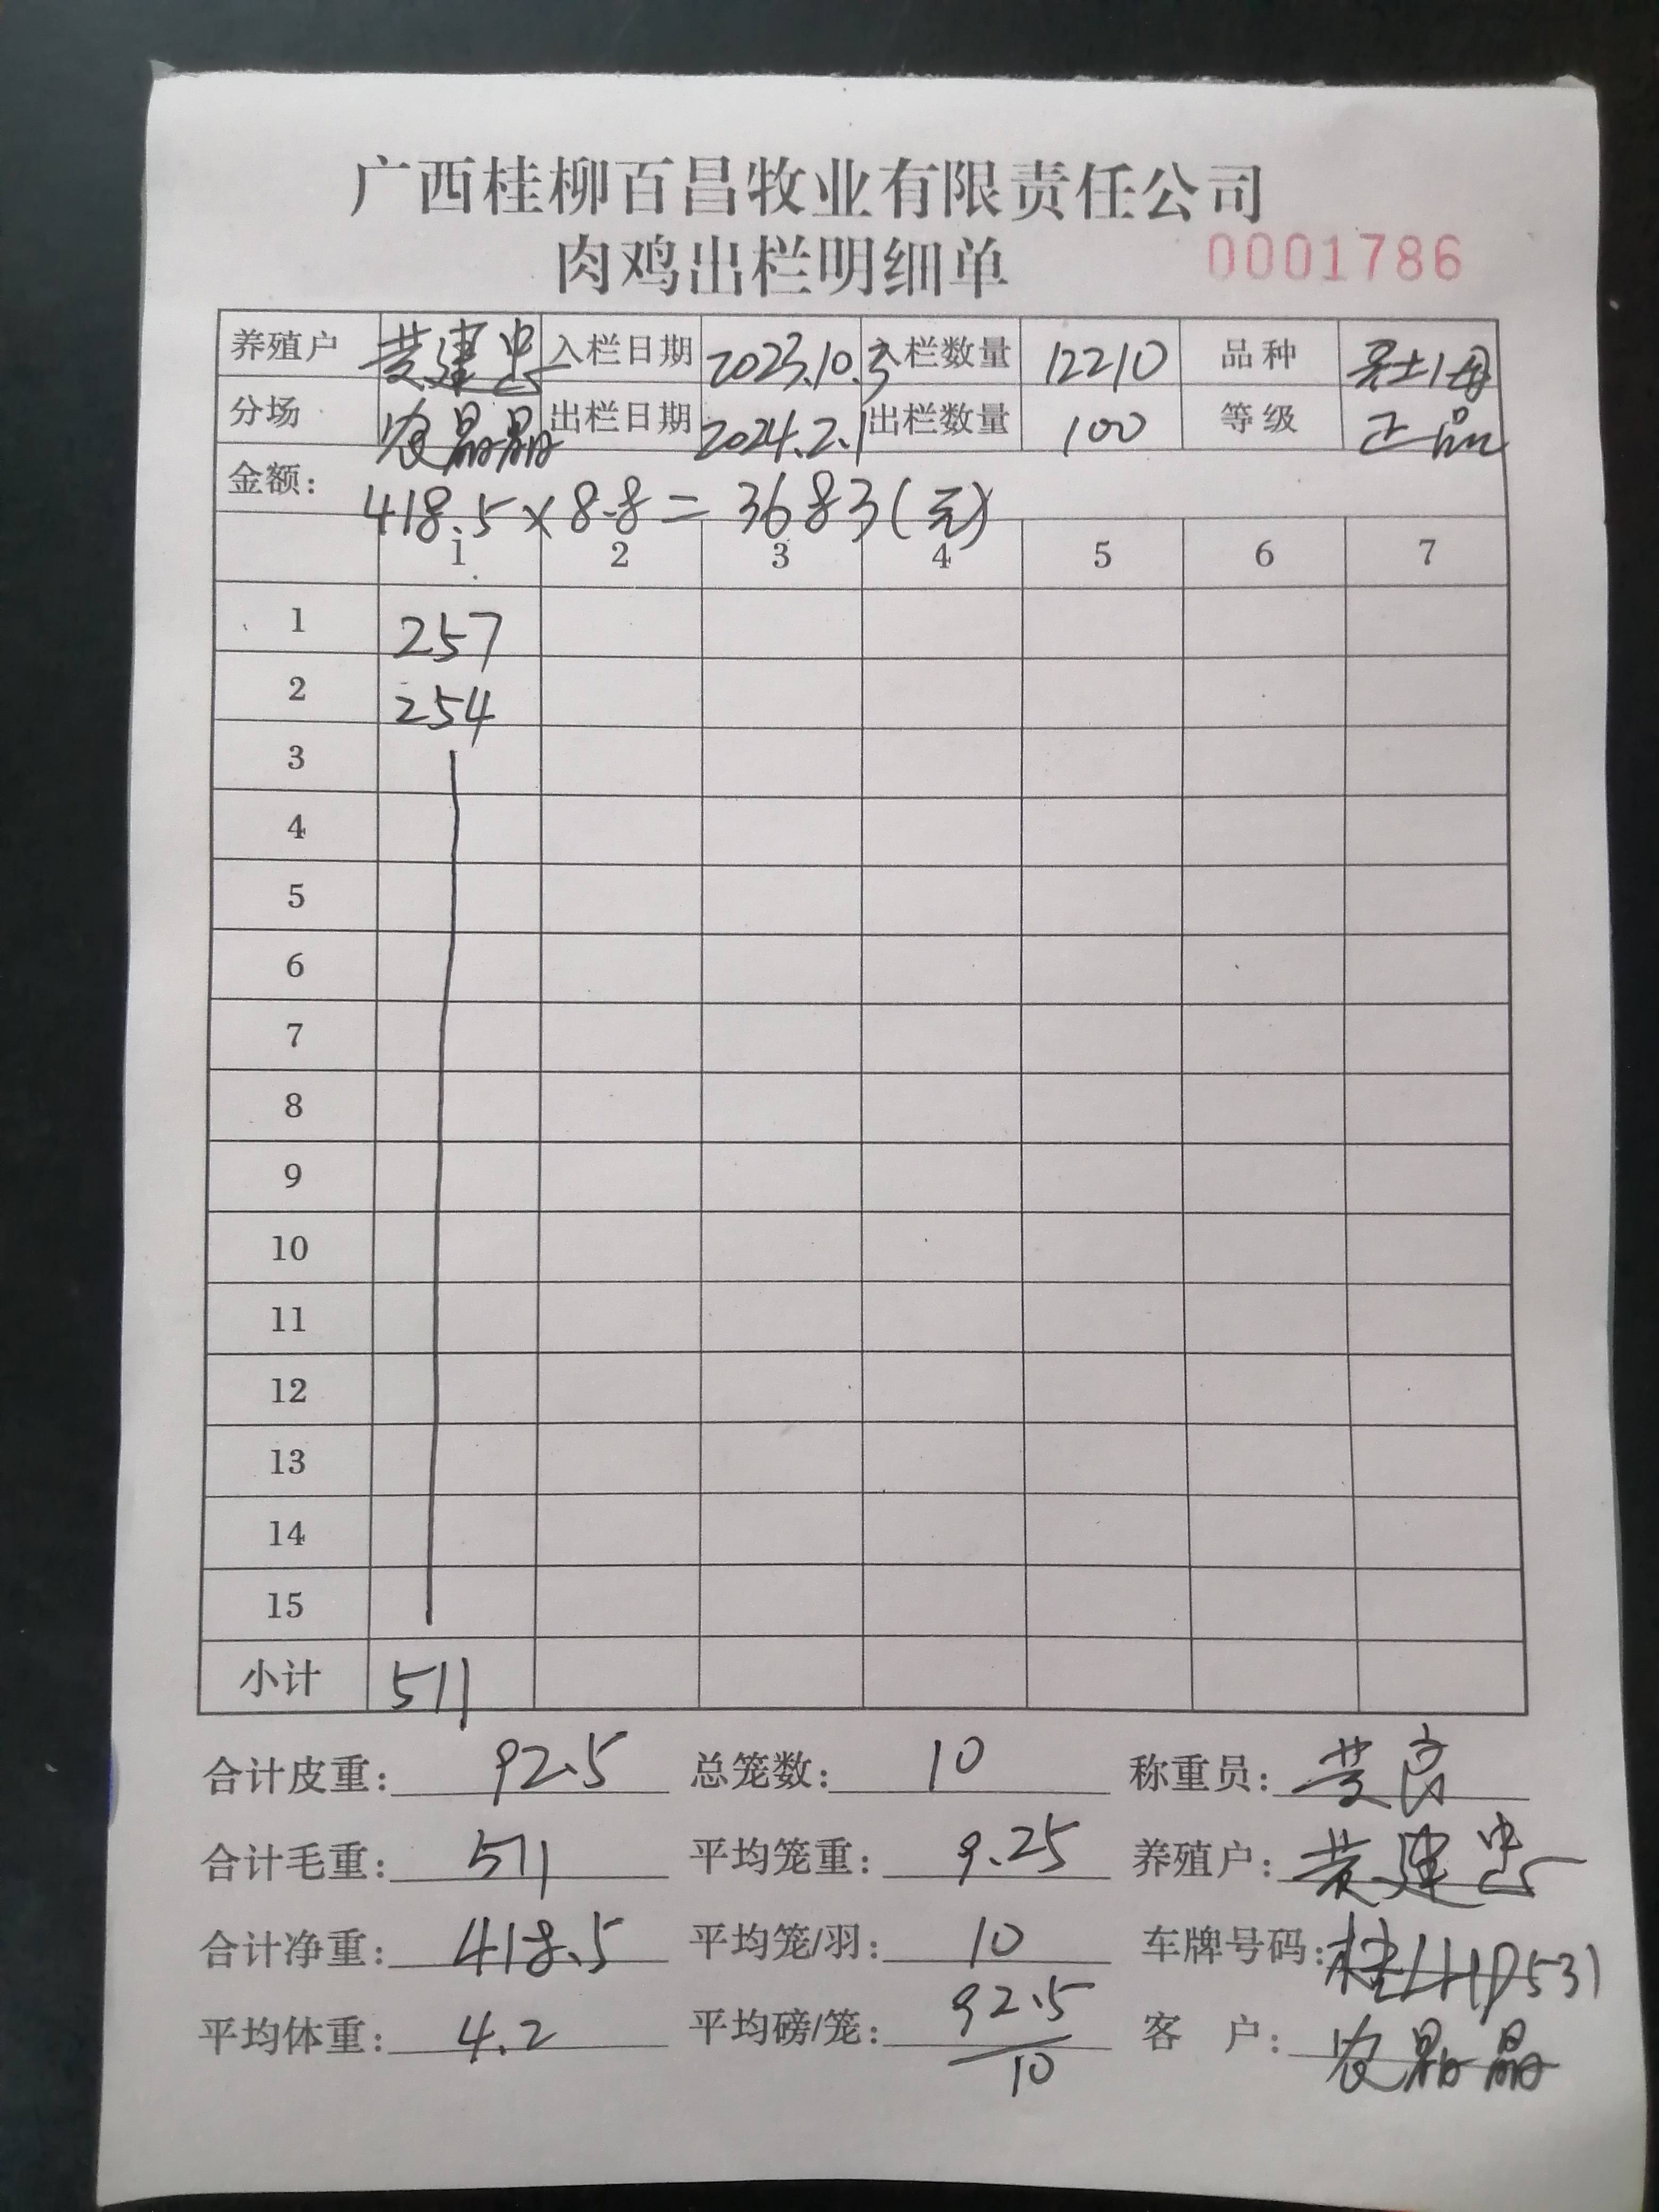 广西桂柳百昌牧业有限责任公司
肉鸡出栏明细单 0001786
养殖户 黄建忠 入栏日期 2023.10.3 入栏数量 12210 品种
分场 农晶晶 出栏日期 2024.2.1 出栏数量 100 等级 正品
金额: 418.5×8.8=3683(元)
1 2 3 4 5 6 7
1 257
2 254
3
4
5
6
7
8
9
10
11
12
13
14
15
小计 511
合计皮重: 92.5 总笼数: 10 称重员: 黄
合计毛重: 511 平均笼重: 9.25 养殖户: 黄建忠
合计净重: 418.5 平均笼/羽: 10 车牌号码:
平均体重: 4.2 平均磅/笼: 92.5/10 客 户: 农晶晶